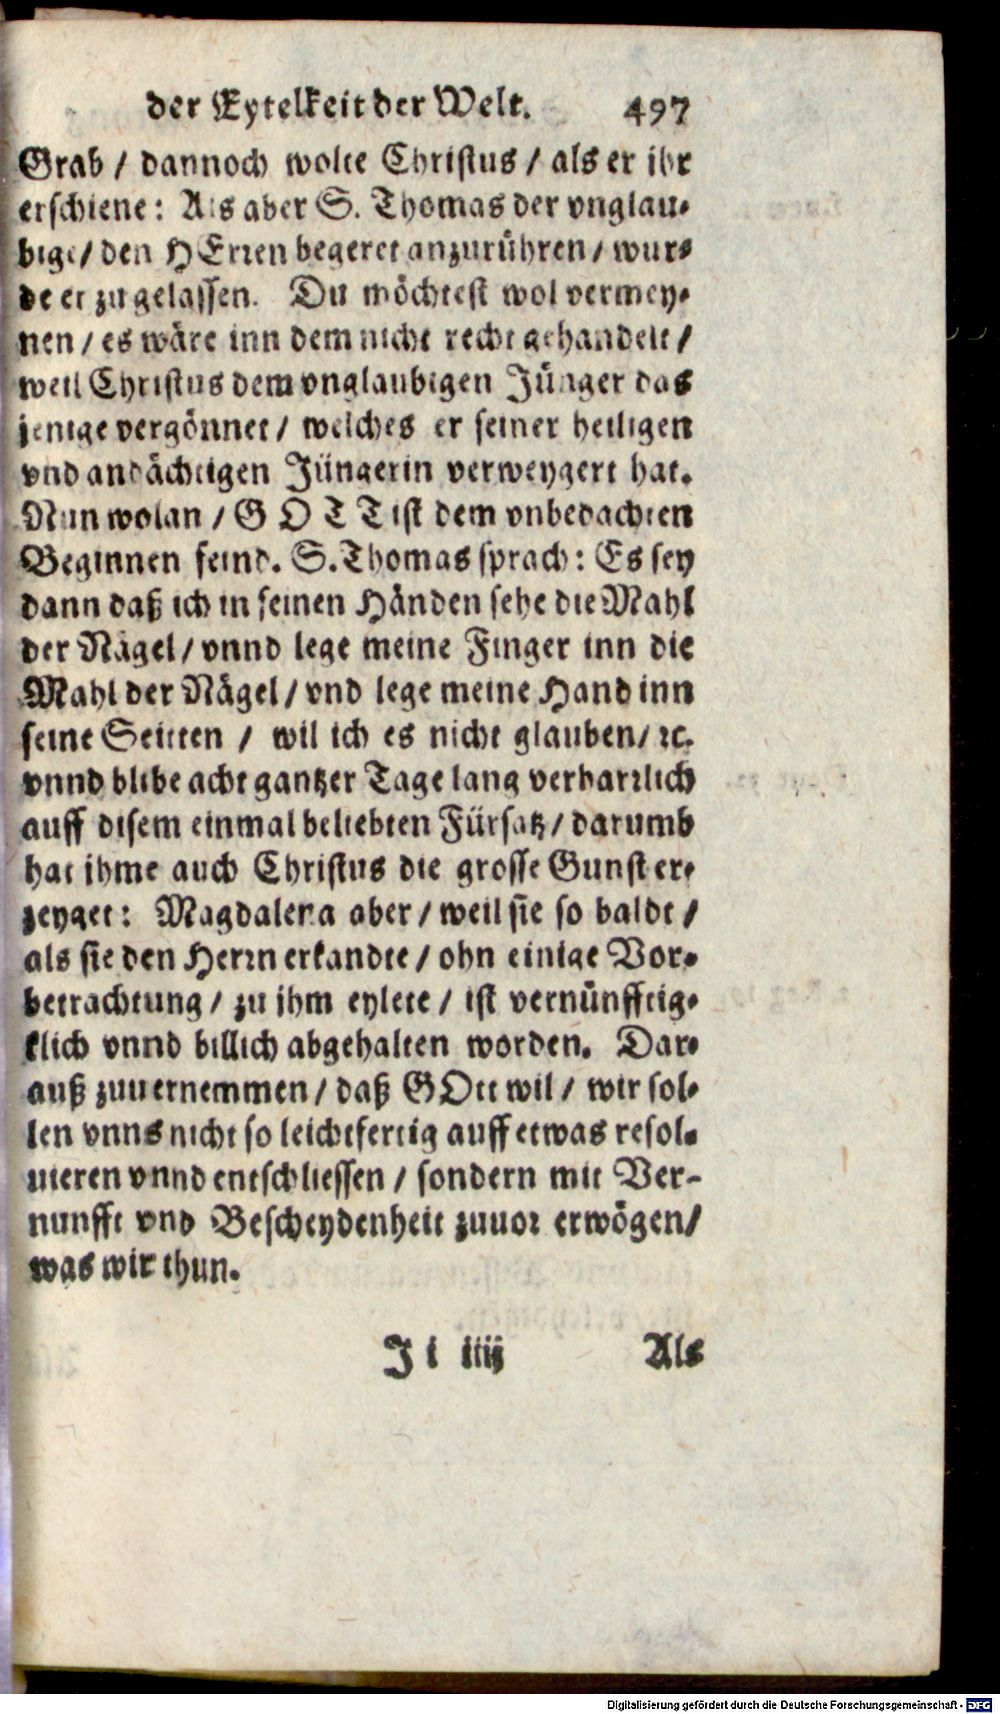 der Eytelkeit der Welt. 497
Grab / dannoch wolte Christus / als er ihr
erschiene: Als aber S. Thomas der vnglau-
bige / den HErren begeret anzurühren / wur-
de er zugelassen. Du möchtest wol vermey-
nen / es wäre inn dem nicht recht gehandelt /
weil Christus dem vnglaubigen Jünger das
jenige vergönnet / welches er seiner heiligen
vnd andächtigen Jüngerin verweygert hat.
Nun wolan / GOTT ist dem vnbedachten
Beginnen feind. S. Thomas sprach: Es sey
dann daß ich in seinen Händen sehe die Mahl
der Nägel / vnnd lege meine Finger inn die
Mahl der Nägel / vnd lege meine Hand inn
seine Seitten / wil ich es nicht glauben / ꝛc.
vnnd blibe acht gantzer Tage lang verharrlich
auff disem einmal beliebten Fürsatz / darumb
hat ihme auch Christus die grosse Gunst er-
zeyget: Magdalena aber / weil sie so baldt /
als sie den Herrn erkandte / ohn einige Vor-
betrachtung / zu ihm eylete / ist vernünfftig-
klich vnnd billich abgehalten worden. Dar-
auß zuuernemmen / daß GOtt wil / wir sol-
len vnns nicht so leichtfertig auff etwas resol-
uieren vnnd entschliessen / sondern mit Ver-
nunfft vnd Bescheydenheit zuuor erwögen /
was wir thun.
Ji iiij Als
Digitalisierung gefördert durch die Deutsche Forschungsgemeinschaft - DFG